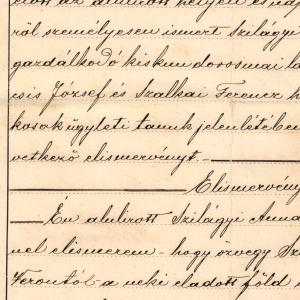 előtt az alulirott helyen és nap
ról személyesen ismert Szilágyi
gazdálkodó kiskun dorosmai la
csis József és Szalkai Ferencz h
kosok ügyleti tanuk jelenlétében
vetkező elismervényt.
Elismervény
Én alulirott Szilágyi Anna
nel elismerem - hogy özvegy Sz
Ferentől a neki eladott föld